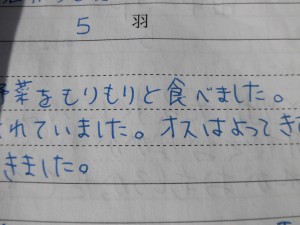 5 羽
野菜をもりもりと食べました。
れていました。オスはよってき
きました。